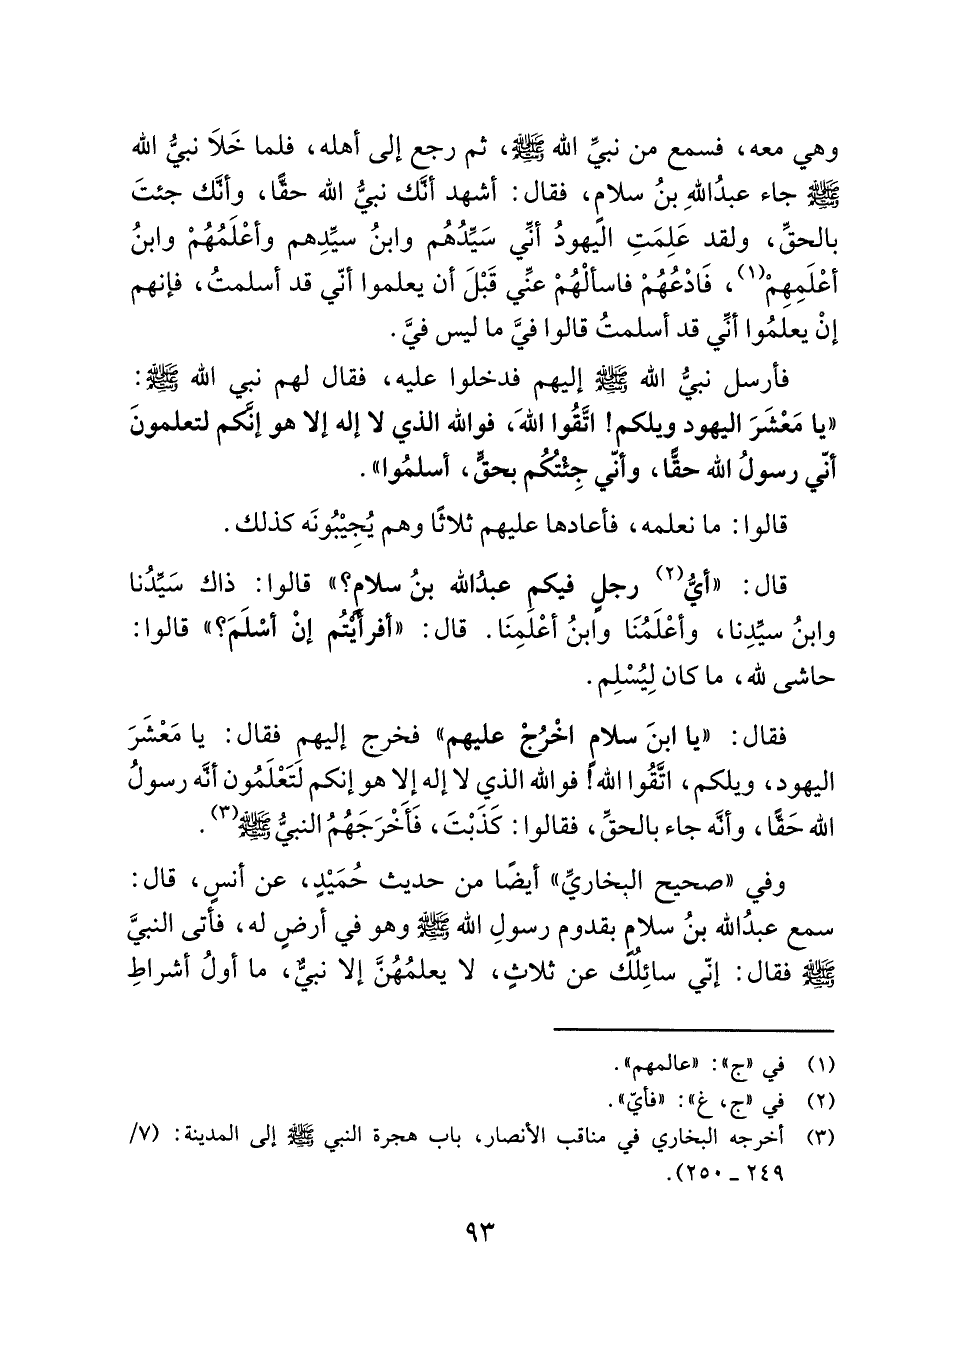 وهي معه، فسمع من نبيِّ الله ﷺ، ثم رجع إلى أهله، فلما خَلَا نبيُّ الله
ﷺ جاء عبدُاللهِ بنُ سلامٍ، فقال: أشهد أنَّك نبيُّ الله حقًّا، وأنَّك جئتَ
بالحقِّ، ولقد عَلِمَتِ اليهودُ أنِّي سَيِّدُهُم وابنُ سيِّدِهم وأعْلَمُهُمْ وابنُ
أعْلَمِهِمْ(١)، فَادْعُهُمْ فاسألْهُمْ عنِّي قَبْلَ أن يعلموا أنّي قد أسلمتُ، فإنهم
إنْ يعلمُوا أنِّي قد أسلمتُ قالوا فيَّ ما ليس فيَّ.
فأرسل نبيُّ الله ﷺ إليهم فدخلوا عليه، فقال لهم نبي الله ﷺ:
«يا مَعْشَرَ اليهود ويلكم! اتَّقُوا اللهَ، فوالله الذي لا إله إلا هو إنَّكم لتعلمونَ
أنّي رسولُ الله حقًّا، وأنّي جِئْتُكُم بحقٍّ، أسلمُوا».
قالوا: ما نعلمه، فأعادها عليهم ثلاثًا وهم يُجِيْبُونَه كذلك.
قال: «أيُّ(٢) رجلٍ فيكم عبدُالله بنُ سلامٍ؟» قالوا: ذاك سَيِّدُنا
وابنُ سيِّدِنا، وأعْلَمُنَا وابنُ أعْلَمِنَا. قال: «أفرأَيْتُم إنْ أسْلَمَ؟» قالوا:
حاشى لله، ما كان لِيُسْلِم.
فقال: «يا ابنَ سلامٍ اخْرُجْ عليهم» فخرج إليهم فقال: يا مَعْشَرَ
اليهود، ويلكم، اتَّقُوا الله! فوالله الذي لا إله إلا هو إنكم لَتَعْلَمُون أنَّه رسولُ
الله حَقًّا، وأنَّه جاء بالحقِّ، فقالوا: كَذَبْتَ، فَأَخْرَجَهُمُ النبيُّ ﷺ(٣).
وفي «صحيح البخاريِّ» أيضًا من حديث حُمَيْدٍ، عن أنسٍ، قال:
سمع عبدُالله بنُ سلامٍ بقدوم رسولِ الله ﷺ وهو في أرضٍ له، فأتى النبيَّ
ﷺ فقال: إنّي سائِلُك عن ثلاثٍ، لا يعلمُهُنَّ إلا نبيٌّ، ما أولُ أشراطِ
(١) في «ج»: «عالمهم».
(٢) في «ج، غ»: «فأيّ».
(٣) أخرجه البخاري في مناقب الأنصار، باب هجرة النبي ﷺ إلى المدينة: (٧/
٢٤٩ ـ ٢٥٠).
٩٣